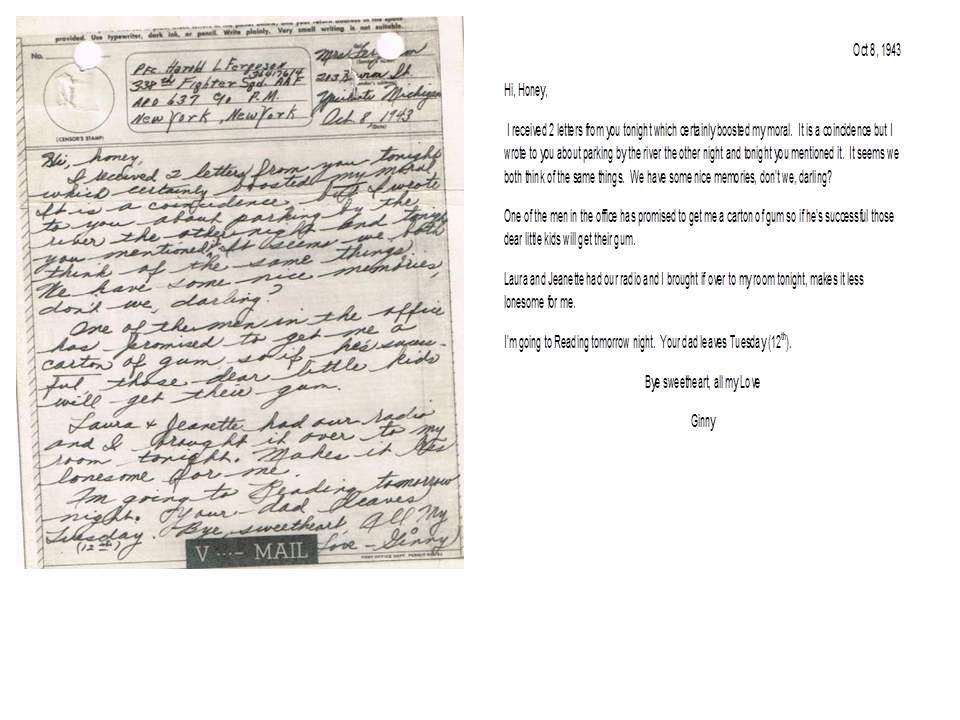 provided. Use typewriter, dark ink, or pencil. Write plainly. Very small writing is not suitable.
No.
(CENSOR'S STAMP)
Pfc Harold L Ferguson
36417614
338th Fighter Sqd. AAF
APO 637 c/o P.M.
New York, New York
Mrs.
203
Michigan
Oct 8 1943
(Date)
Hi, honey,
I received 2 letters from you tonight
which certainly boosted my moral
It is a coincidence, but I wrote
to you about parking by the
river the other night and tonight
you mentioned it. It seems we both
think of the same things.
We have some nice memories,
don't we, darling?
One of the men in the office
has promised to get me a
carton of gum so if he's success-
ful, those dear little kids
will get their gum.
Laura & Jeanette had our radio
and I brought it over to my
room tonight. Makes it less
lonesome for me.
I'm going to Reading tomorrow
night. Your dad leaves
Tuesday. Bye, sweetheart, All My
(12th) Love - Ginny
V ···- MAIL
POST OFFICE DEPT. PERMIT
Oct 8, 1943
Hi, Honey,
I received 2 letters from you tonight which certainly boosted my moral. It is a coincidence but I
wrote to you about parking by the river the other night and tonight you mentioned it. It seems we
both think of the same things. We have some nice memories, don't we, darling?
One of the men in the office has promised to get me a carton of gum so if he's successful those
dear little kids will get their gum.
Laura and Jeanette had our radio and I brought if over to my room tonight, makes it less
lonesome for me.
I'm going to Reading tomorrow night. Your dad leaves Tuesday (12th).
Bye sweetheart, all my Love
Ginny